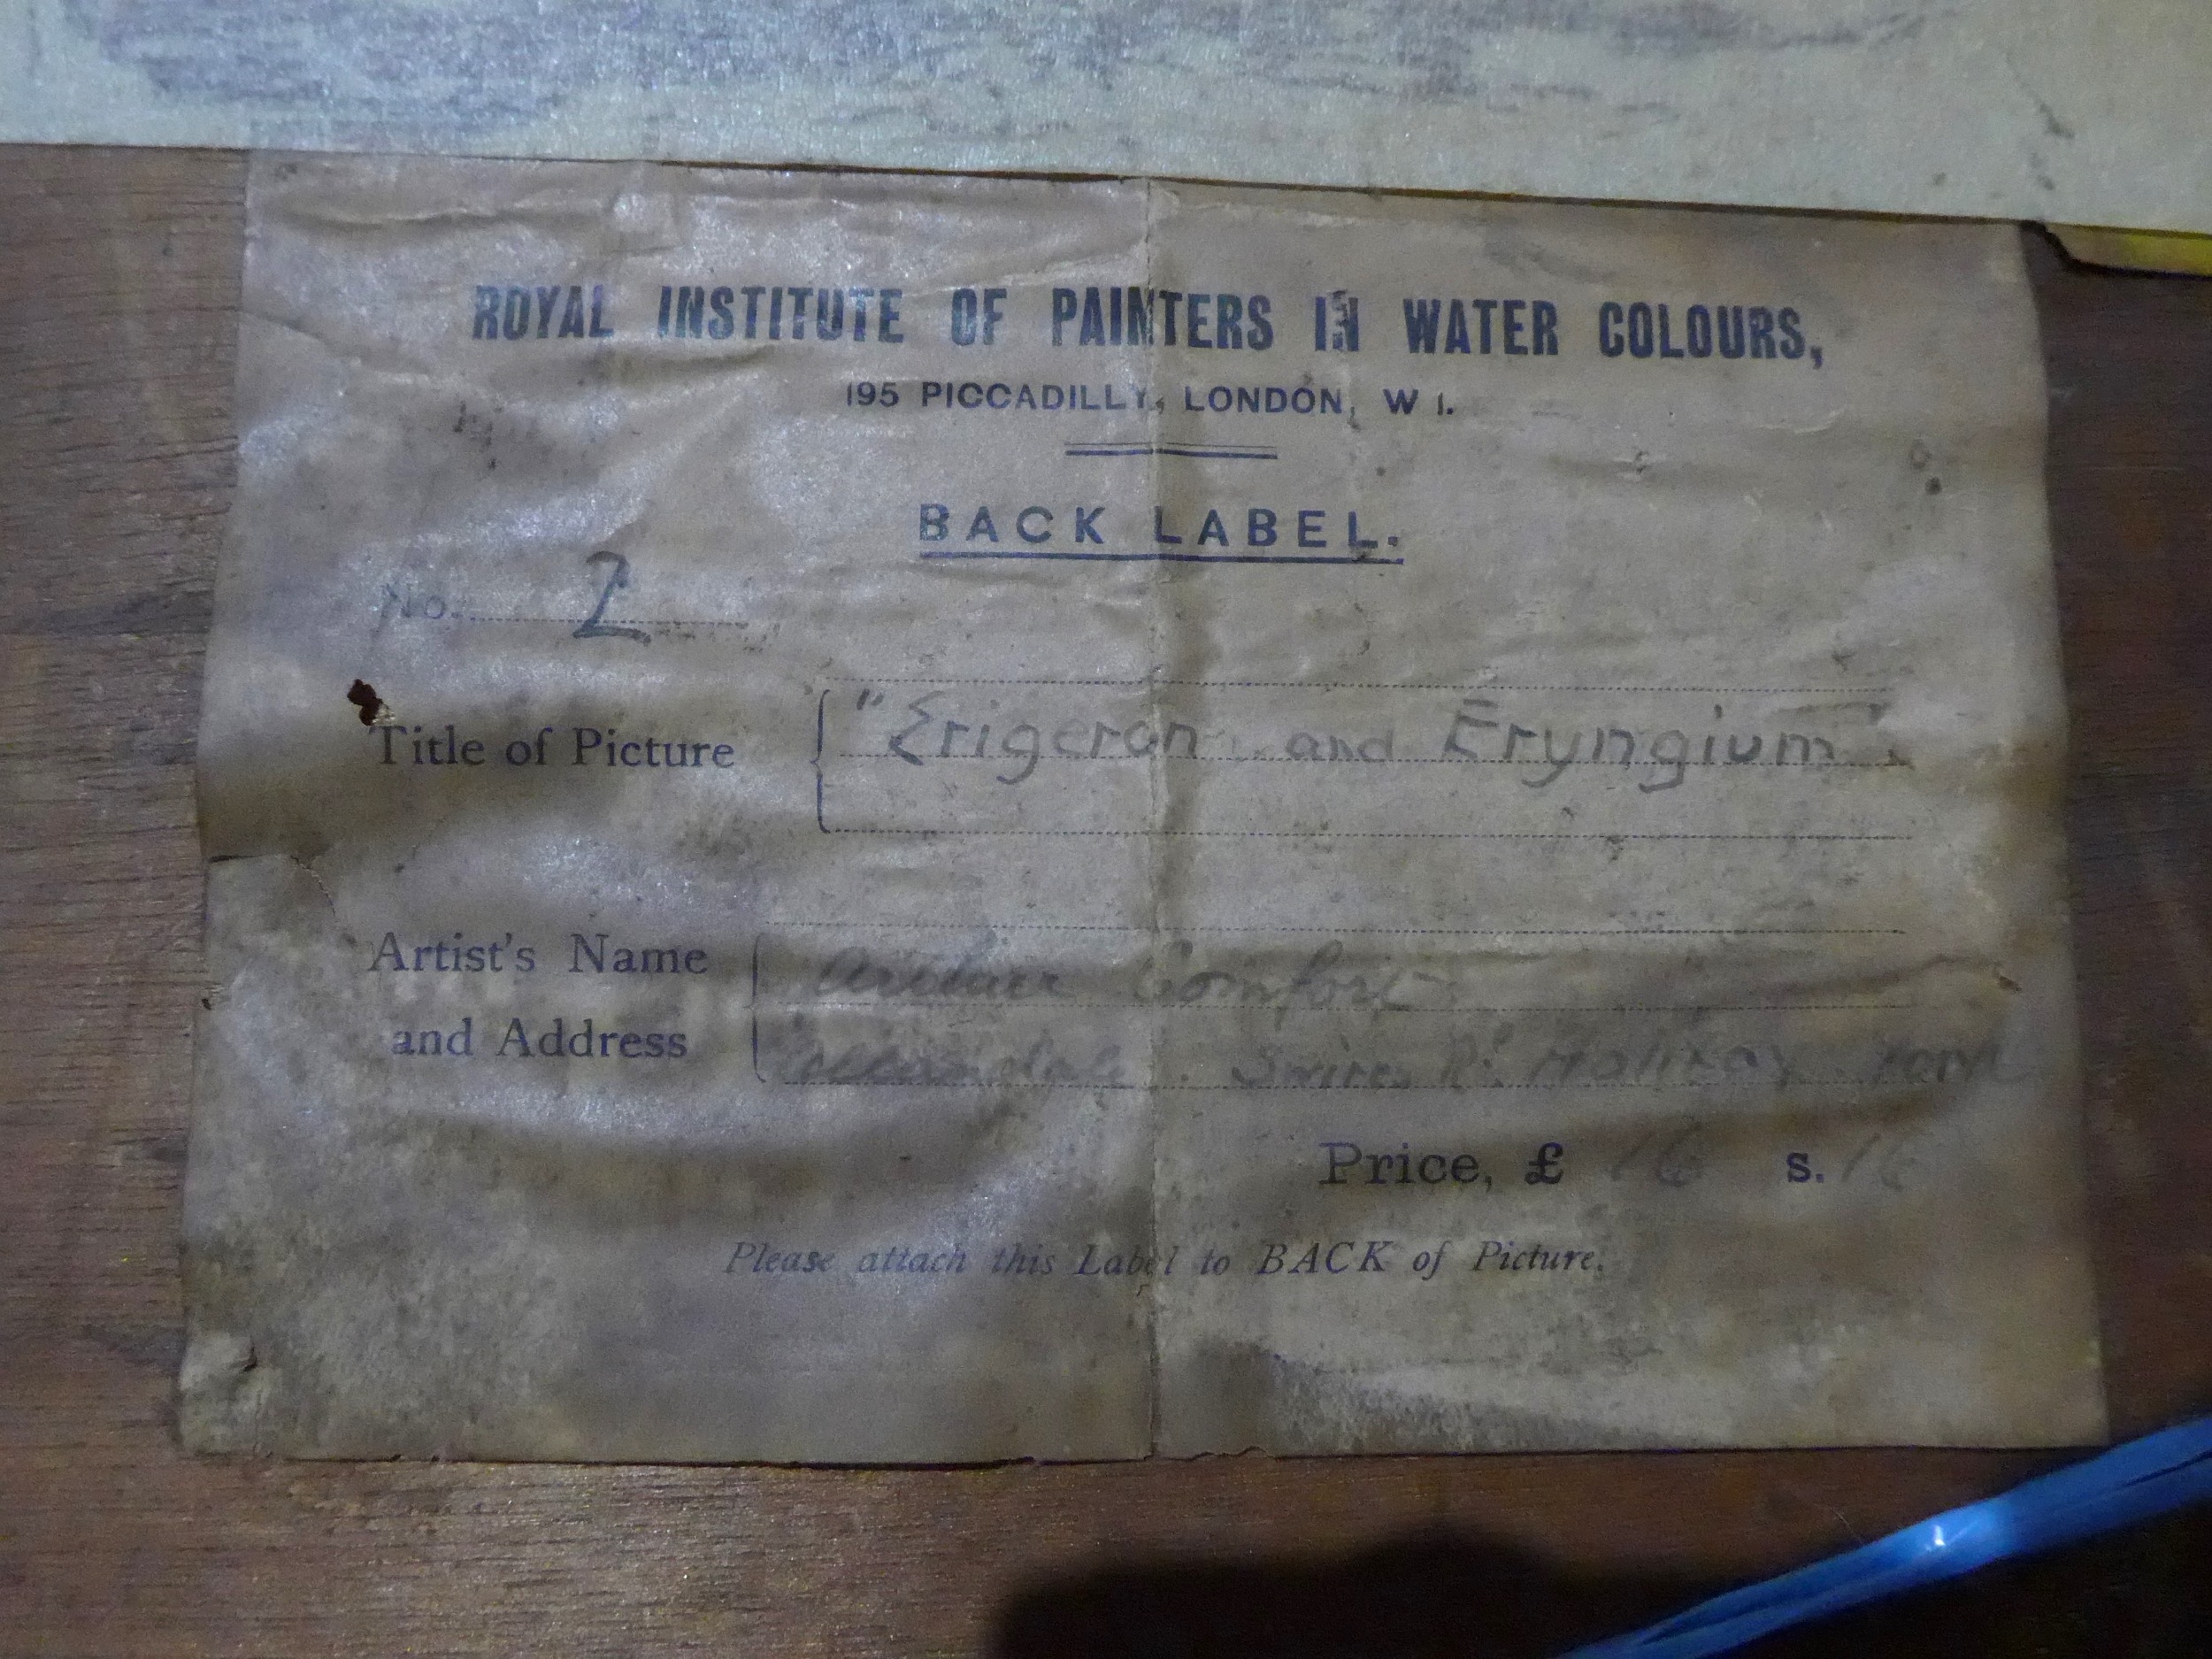 ROYAL INSTITUTE OF PAINTERS IN WATER COLOURS,
195 PICCADILLY, LONDON, W 1.
BACK LABEL.
No. 2
Title of Picture "Erigeron and Eryngium".
Artist's Name Arthur Comfort
and Address Swires Rd. Halifax
Price, £ 16 s. 16
Please attach this Label to BACK of Picture.